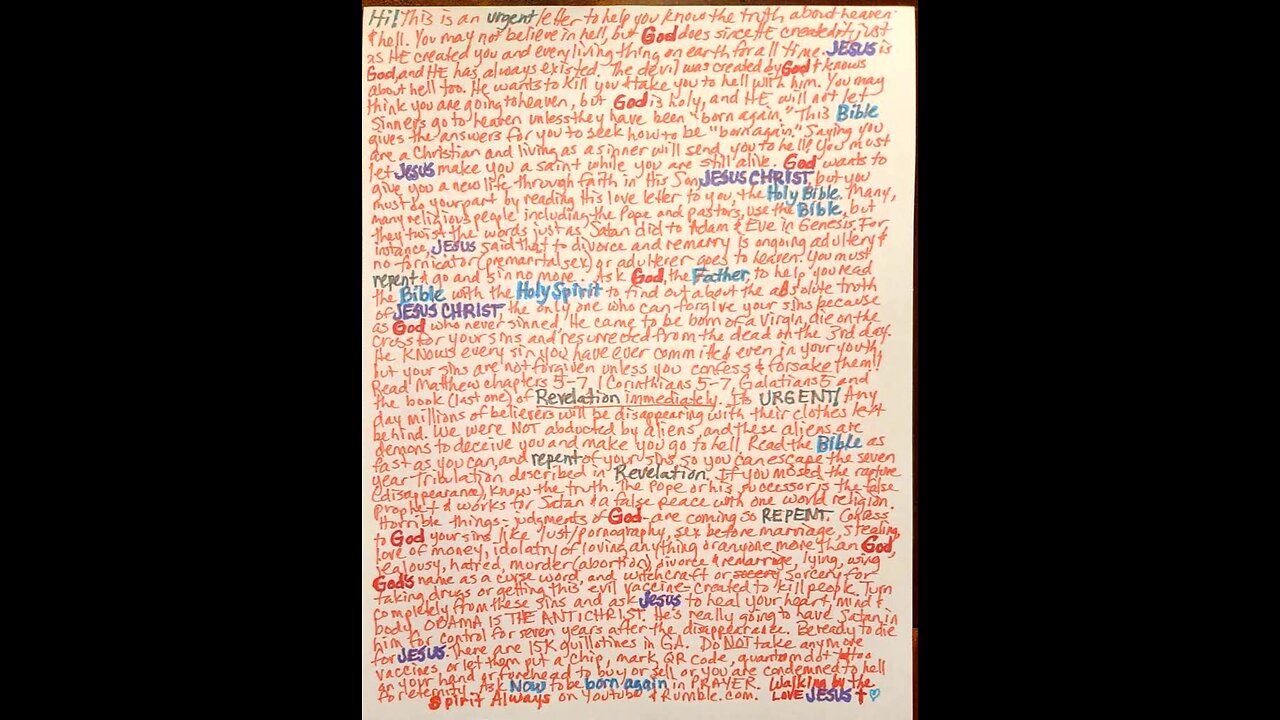 Hi! This is an urgent letter to help you know the truth about heaven
& hell. You may not believe in hell, but God does since HE created it, just
as HE created you and every living thing on earth for all time. JESUS is
God, and HE has always existed. The devil was created by God & knows
about hell too. He wants to kill you & take you to hell with him. You may
think you are going to heaven, but God is holy, and HE will not let
sinners go to heaven unless they have been "born again." This Bible
gives the answers for you to seek how to be "born again." Saying you
are a Christian and living as a sinner will send you to hell! You must
let Jesus make you a saint while you are still alive. God wants to
give you a new life through faith in His Son JESUS CHRIST, but you
must do your part by reading His love letter to you, the Holy Bible. Many,
many religious people including the Pope and pastors, use the Bible, but
they twist the words just as Satan did to Adam & Eve in Genesis. For
instance, JESUS said that to divorce and remarry is ongoing adultery &
no fornicator (premarital sex) or adulterer goes to heaven. You must
repent & go and sin no more. Ask God, the Father, to help you read
the Bible with the Holy Spirit to find out about the absolute truth
of JESUS CHRIST, the only one who can forgive your sins because
as God who never sinned, He came to be born of a virgin, die on the
cross for your sins and resurrected from the dead on the 3rd day.
He knows every sin you have ever committed even in your youth,
but your sins are not forgiven unless you confess & forsake them!!
Read Matthew chapters 5-7, 1 Corinthians 5-7, Galatians 5 and
the book (last one) of Revelation immediately. Its URGENT! Any
day millions of believers will be disappearing with their clothes left
behind. We were NOT abducted by aliens, and these aliens are
demons to deceive you and make you go to hell. Read the Bible as
fast as you can, and repent of your sins so you can escape the seven
year Tribulation described in Revelation. If you missed the rapture
(disappearance), know the truth. The Pope or his successor is the false
prophet & works for Satan & a false peace with one world religion.
Horrible things - judgments of God - are coming so REPENT. Confess
to God your sins like lust/pornography, sex before marriage, stealing,
love of money, idolatry of loving anything or anyone more than God,
jealousy, hatred, murder (abortion), divorce & remarriage, lying, using
God's name as a curse word, and witchcraft or sorcery for
taking drugs or getting this evil vaccine - created to kill people. Turn
completely from these sins and ask Jesus to heal your heart, mind &
body. OBAMA IS THE ANTICHRIST. He's really going to have Satan in
him for control for seven years after the disappearance. Be ready to die
for JESUS. There are 15K guillotines in GA. Do NOT take any more
vaccines or let them put a chip, mark, QR code, quantum dot tattoo
on your hand or forehead to buy or sell or you are condemned to hell
for eternity. Ask NOW to be born again in PRAYER. Walking by the
Spirit Always on YouTube & Rumble.com. LOVE JESUS